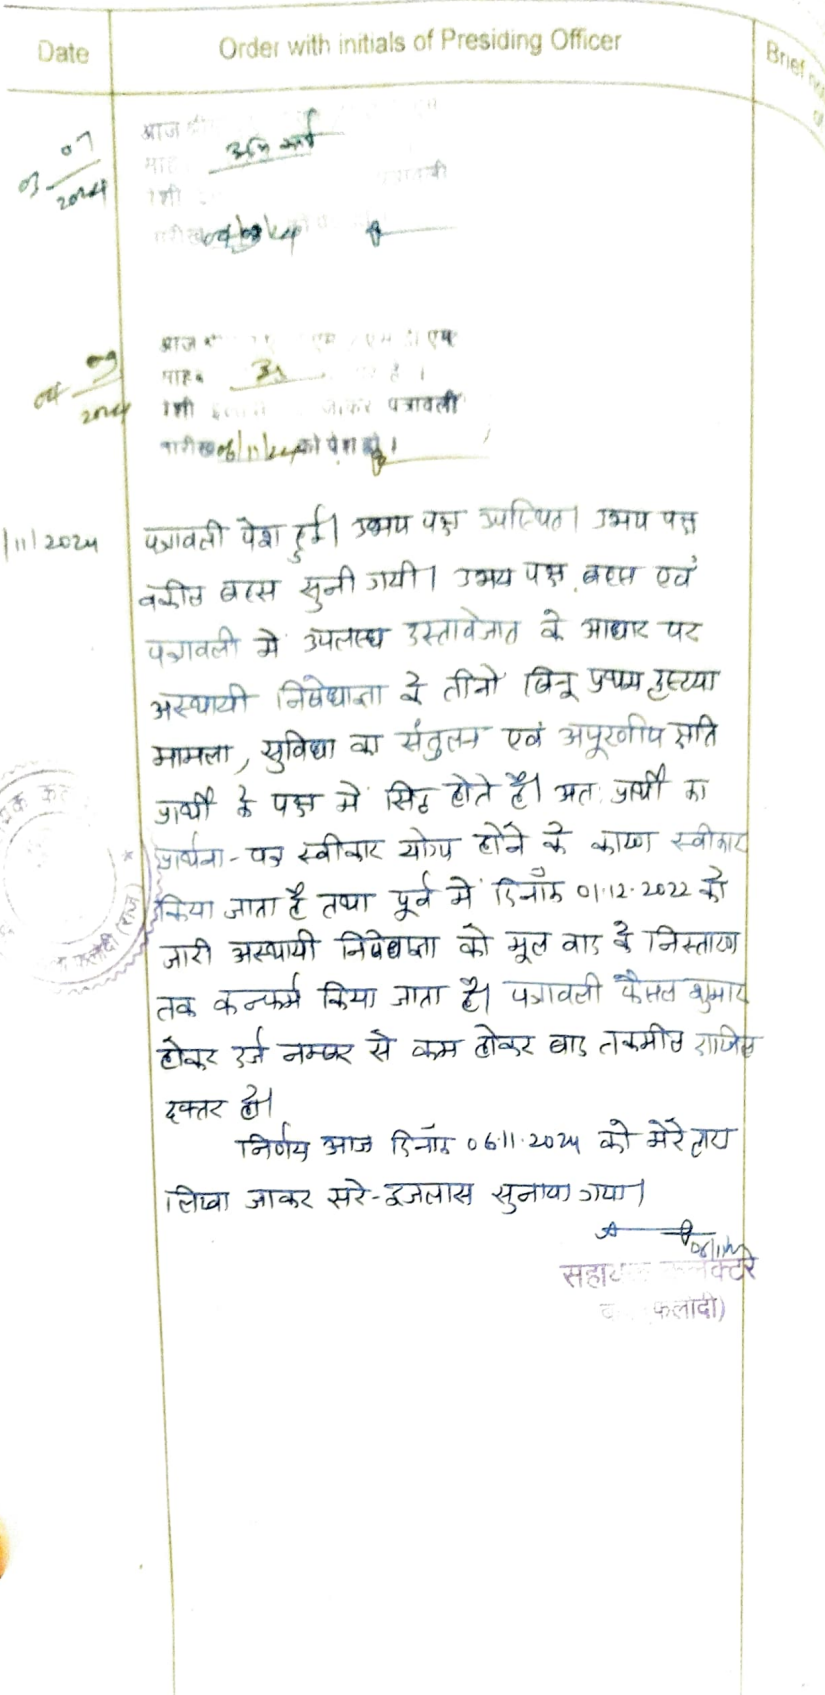 Date
Order with initials of Presiding Officer
Brief
03 07
2024
आज
माह
पेशी
04/09/24
04 09
2024
आज
एम
पेशी जाकर पत्रावली
तारीख 06/11/24 को पेश हो।
/11/2024
पत्रावली पेश हुई। उभय पक्ष उपस्थित। उभय पक्ष
वकील बहस सुनी गयी। उभय पक्ष बहस एवं
पत्रावली मे उपलब्ध दस्तावेजात के आधार पर
अस्थायी निषेधाज्ञा के तीनो बिन्दू प्रथम दृष्टया
मामला, सुविधा का संतुलन एवं अपूरणीय क्षति
प्रार्थी के पक्ष में सिद्ध होते है। अतः प्रार्थी का
प्रार्थना-पत्र स्वीकार योग्य होने के कारण स्वीकार
किया जाता है तथा पूर्व में दिनाँक 01.12.2022 को
जारी अस्थायी निषेधाज्ञा को मूल वाद के निस्तारण
तक कन्फर्म किया जाता है। पत्रावली फैसल शुमार
होकर दर्ज नम्बर से कम होकर बाद तकमील दाखिल
दफ्तर हो।
निर्णय आज दिनाँक 06.11.2024 को मेरे द्वारा
लिखा जाकर सरे-इजलास सुनाया गया।
06/11/24
सहायक कलक्टर
फलोदी)
फलोदी (राज)